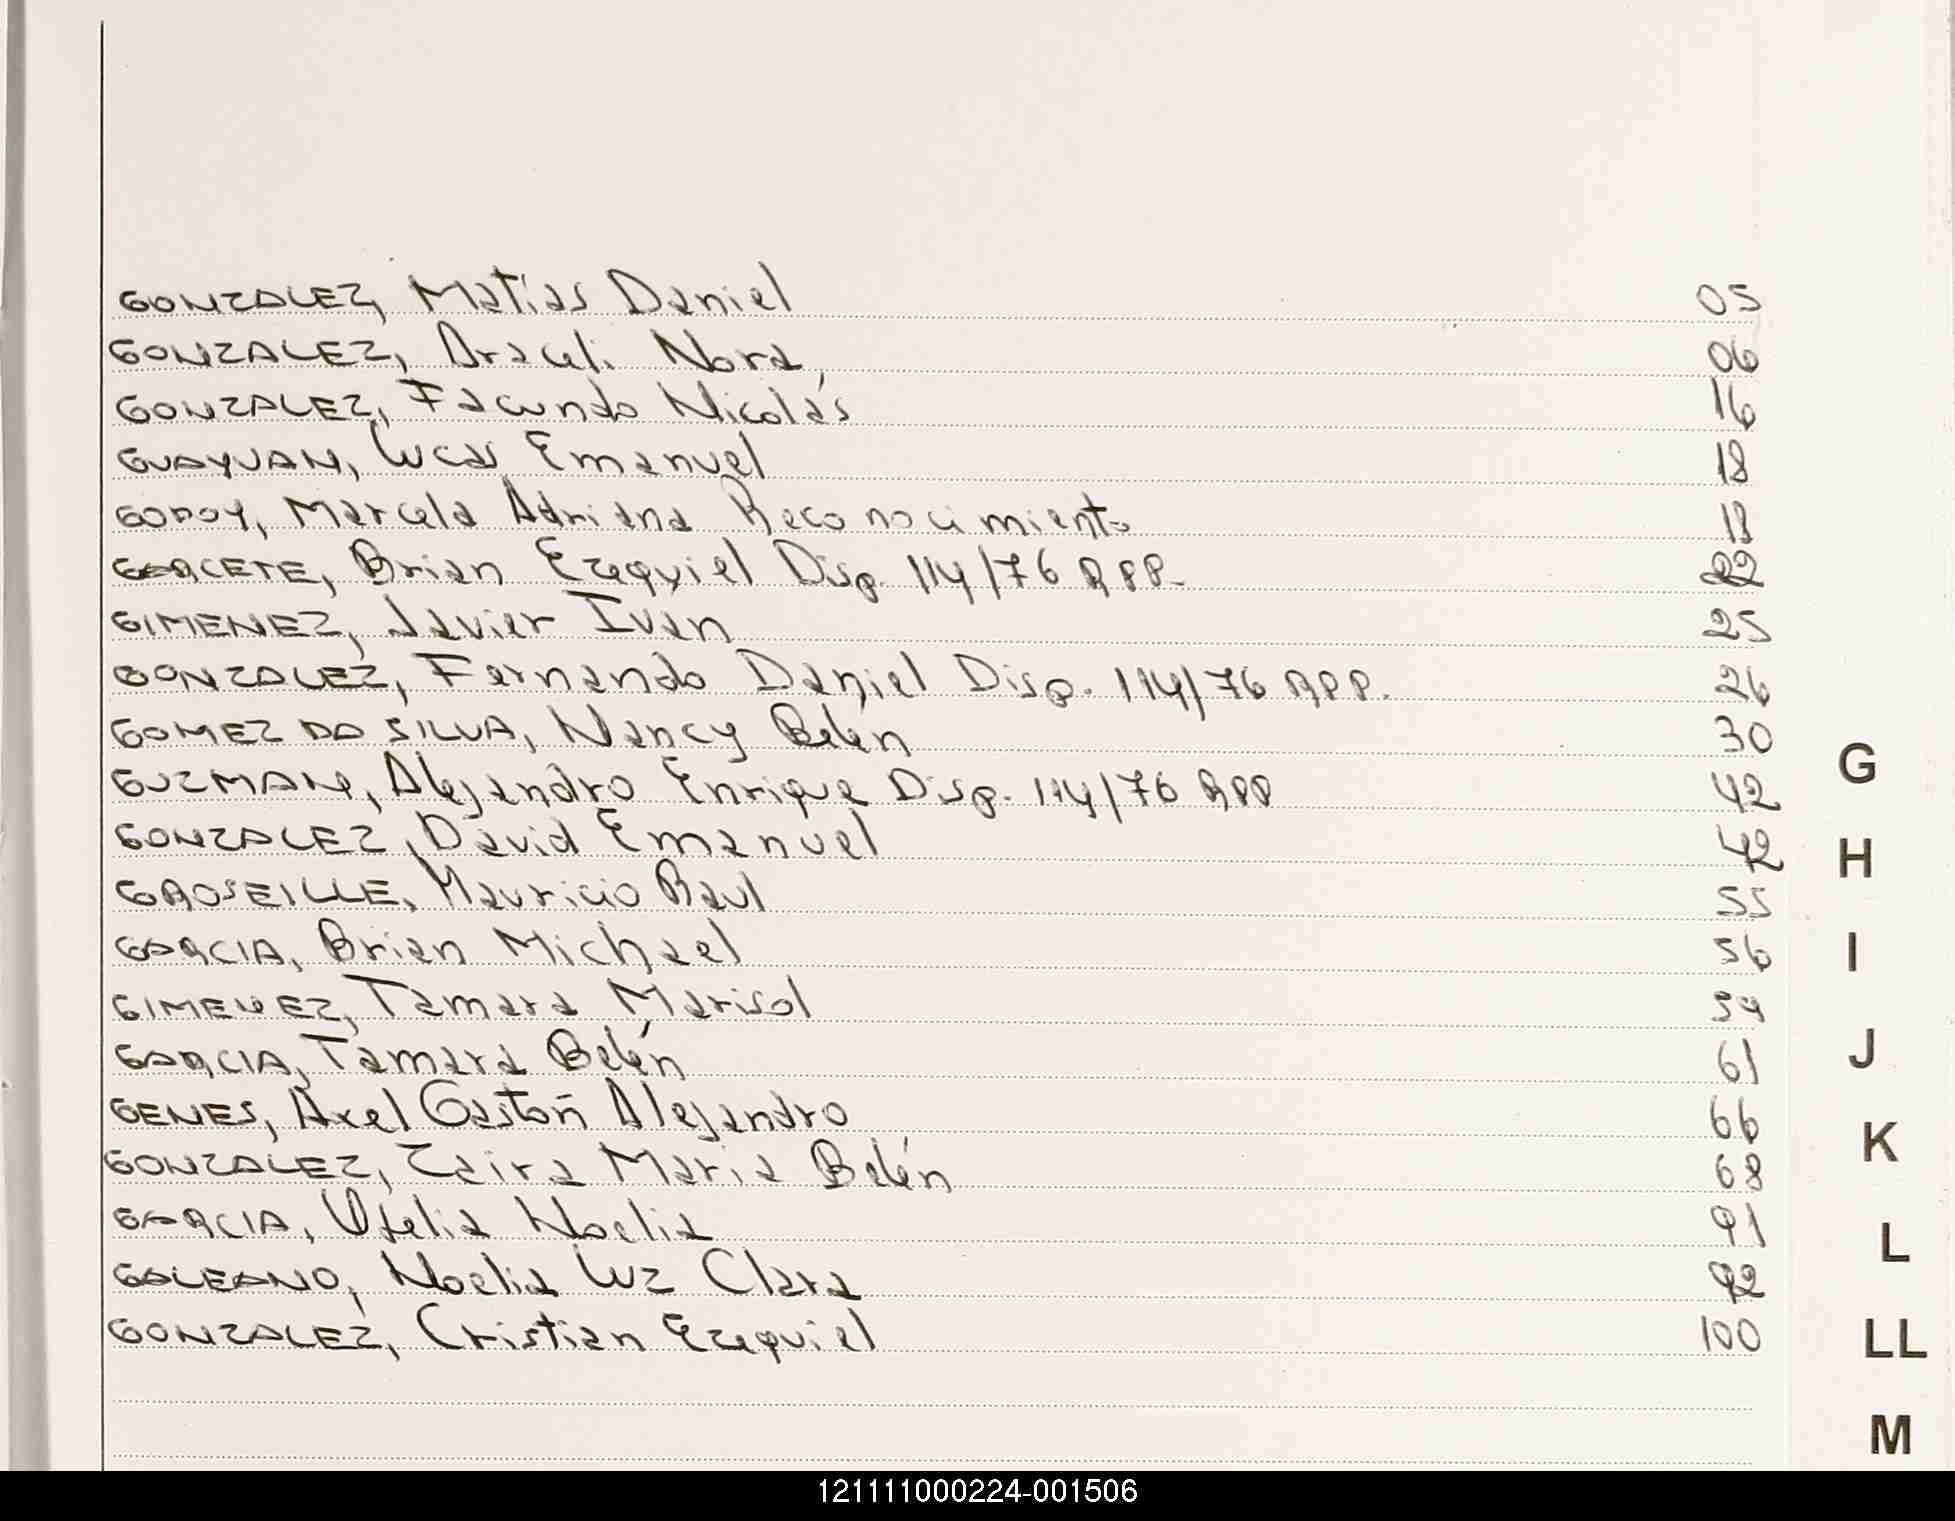 GONZALEZ, Matías Daniel 05
GONZALEZ, Araceli Nora, 06
GONZALEZ, Facundo Nicolás 16
GUAYUAN, Lucas Emanuel 18
GODOY, Marcela Adriana Reconocimiento
GARCETE, Brian Ezequiel Disp. 114/76 RPP. 22
GIMENEZ, Javier Ivan 25
GONZALEZ, Fernando Daniel Disp. 114/76 RPP. 26
GOMEZ DO SILVA, Nancy Belén 30
GUZMAN, Alejandro Enrique Disp. 114/76 RPP 42
GONZALEZ, David Emanuel 42
GROSEILLE, Mauricio Raul 55
GARCIA, Brian Michael 56
GIMENEZ, Tamara Marisol 59
GARCIA, Tamara Belén 61
GENES, Axel Gastón Alejandro 66
GONZALEZ, Zaira Maria Belén 68
GARCIA, Ofelia Noelia 91
GALEANO, Noelia Luz Clara 92
GONZALEZ, Cristian Ezequiel 100
G
H
I
J
K
L
LL
M
121111000224-001506